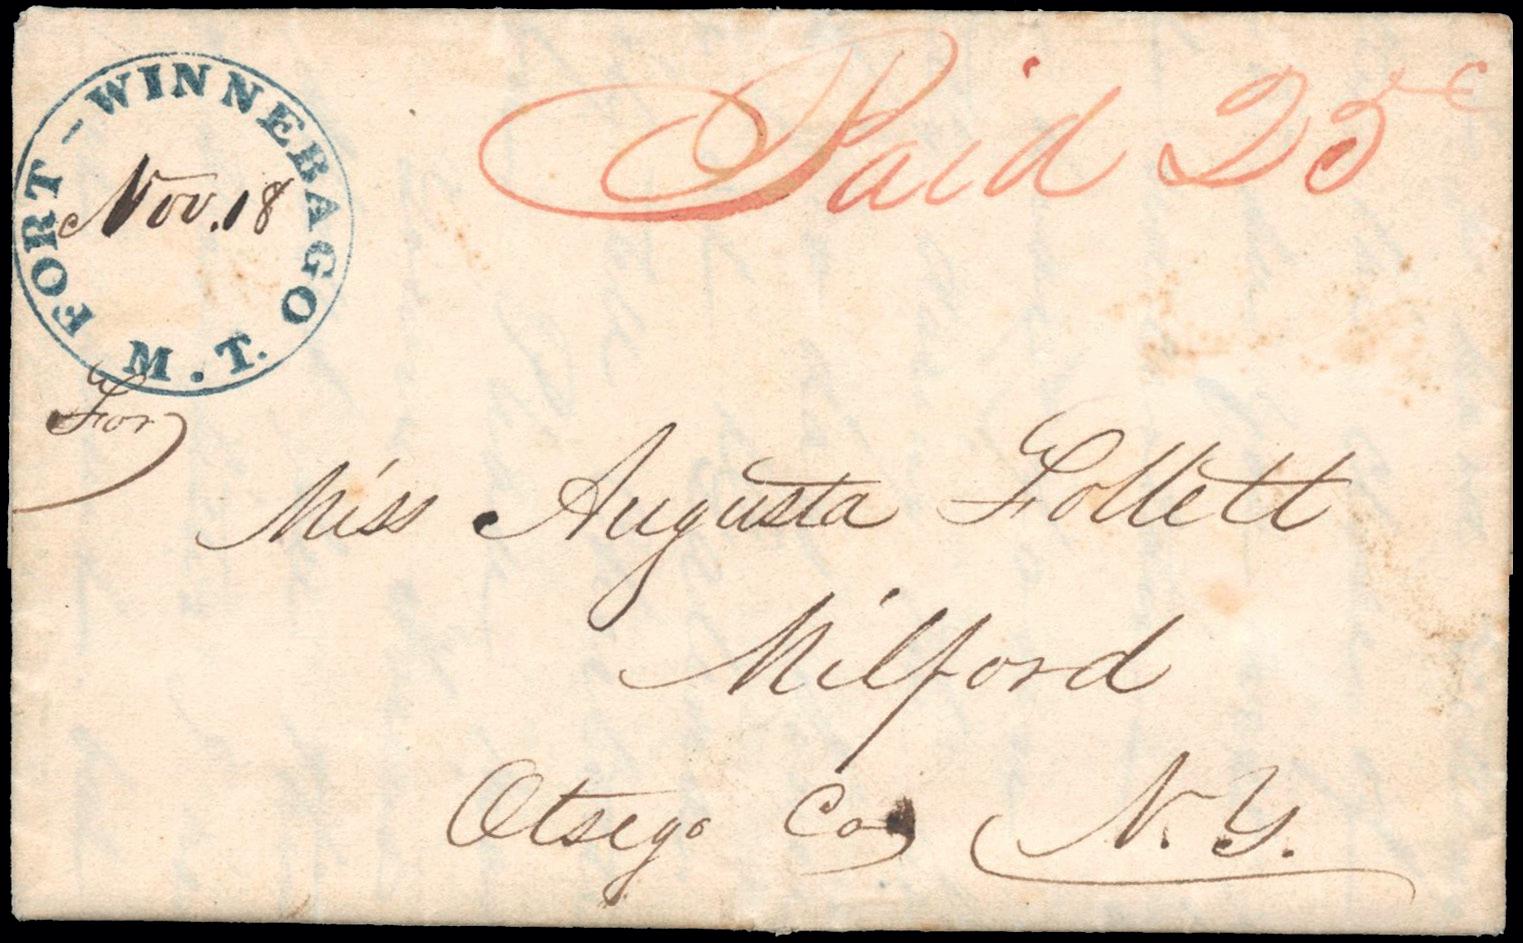 FORT - WINNEBAGO M. T.
Nov. 18
Paid 25 c
For
Miss Augusta Follett
Milford
Otsego Co N. Y.